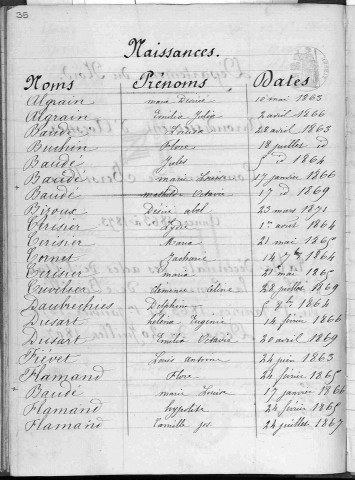 35
Naissances.
Noms Prénoms Dates
Algrain marie Désirée 10 mai 1863
Algrain Emilia Julia 2 avril 1866
Baudé Louise 28 avril 1863
Burbin Flore 18 juillet id
Baudé Jules 5 id 1864
Baudé marie Louise 17 janvier 1866
Baudé mathilde Octavie 17 id 1869
Bijoux Désiré abel 23 mars 1871
Cerisier Lydie 1er avril 1864
Cerisier Maria 21 mai 1865
Cornet Zacharie 14 7bre 1864
Cerisier maria 21 mai 1865
Cuvelier Clémence Céline 28 juillet 1869
Daubrechies Delphin 5 8bre 1864
Dusart héléna Eugénie 14 février 1866
Dusart Emilia Octavie 20 avril 1869
Fievet Louis antoine 24 juin 1863
Flamand Flore 24 février 1865
+ Baudé marie Louise 17 janvier 1866
Flamand hypolite 24 février 1865
Flamand Camille jh 24 juillet 1867